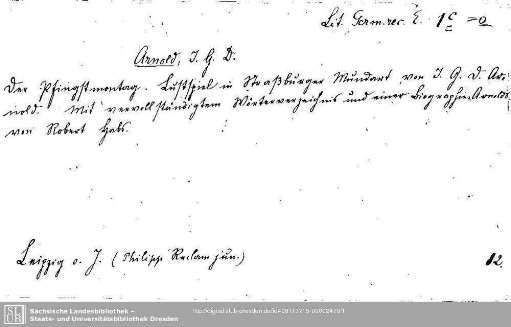 Lit. Germ. rec. E. 1 c = a
Arnold, J. G. D.
Der Pfingstmontag. Lustspiel in Straßburger Mundart von J. G. D. Ar-
nold. Mit vervollständigtem Wörterverzeichnis und einer Biographie Arnolds
von Robert Habs.
Leipzig o. J. (Philipp Reclam jun.)
12.
Sächsische Landesbibliothek –
Staats- und Universitätsbibliothek Dresden